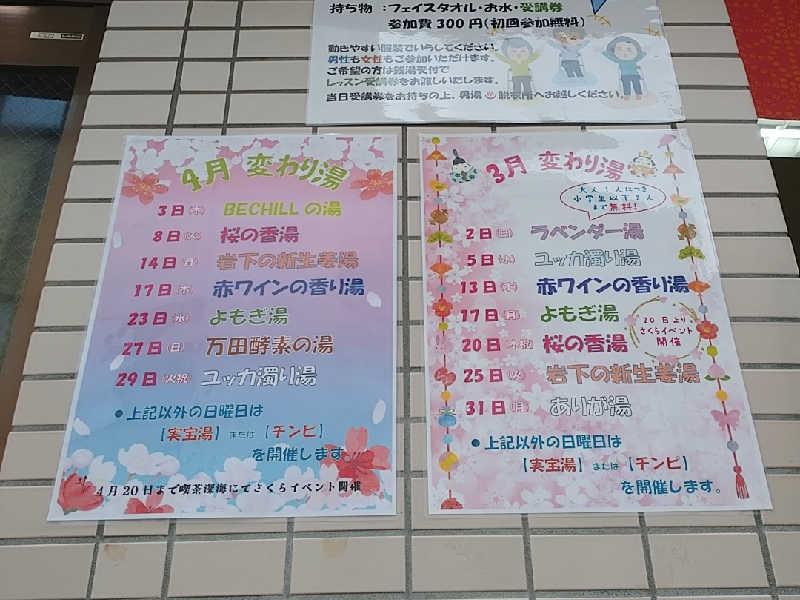 持ち物 :フェイスタオル・お水・受講券
参加費300円(初回参加無料)
動きやすい服装でいらしてください。
男性も女性もご参加いただけます。
ご希望の方は銭湯受付で
レッスン受講券をお渡しいたします。
当日受講券をお持ちの上、男湯♨脱衣所へお越しください。
4月 変わり湯
3日(木) BECHILLの湯
8日(火) 桜の香湯
14日(月) 岩下の新生姜湯
17日(木) 赤ワインの香り湯
23日(水) よもぎ湯
27日(日) 万田酵素の湯
29日(火祝) ユッカ濁り湯
●上記以外の日曜日は
【実宝湯】または【チンピ】
を開催します。
4月20日まで喫茶にてさくらイベント開催
3月 変わり湯
大人1人につき
小学生以下2人
まで無料!
2日(日) ラベンダー湯
5日(水) ユッカ濁り湯
13日(木) 赤ワインの香り湯
17日(月) よもぎ湯
20日(木祝) 桜の香湯
20日より
さくらイベント
開催
25日(火) 岩下の新生姜湯
31日(月) ありが湯
●上記以外の日曜日は
【実宝湯】または【チンピ】
を開催します。